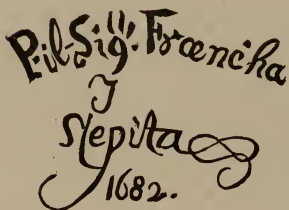 P:il:Sig: Francha
J
Slepita
1682.